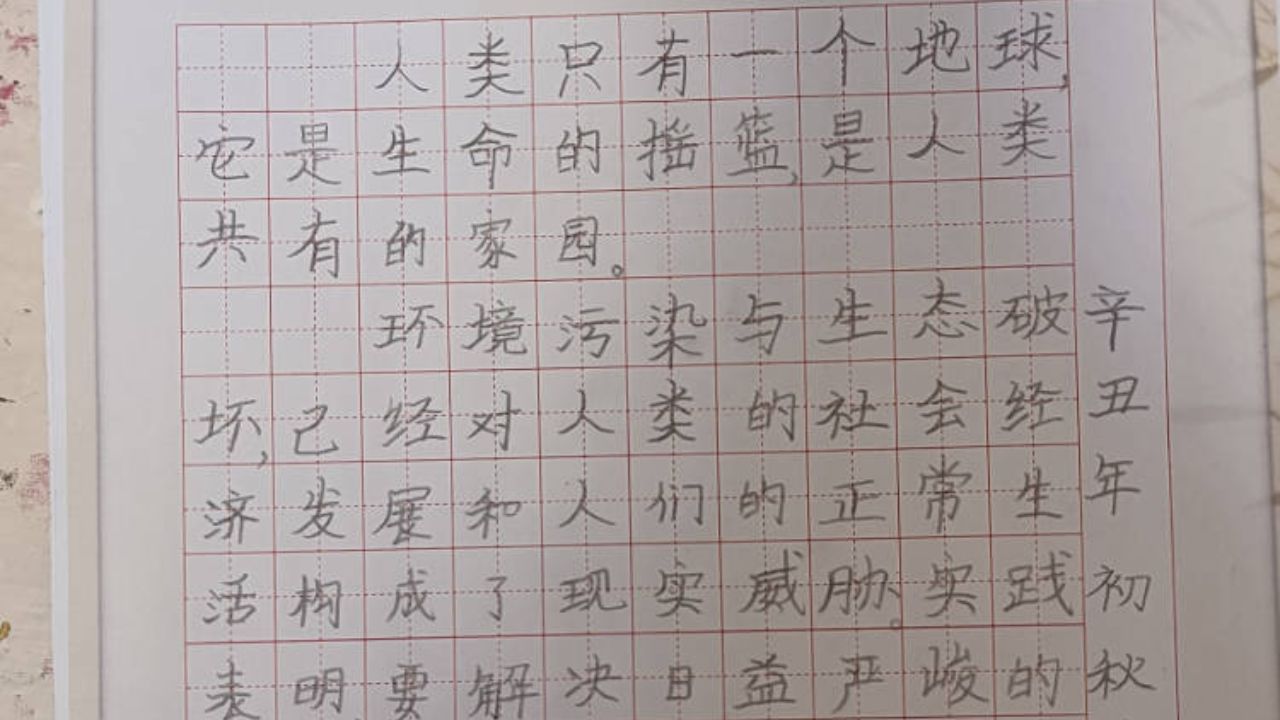 人类只有一个地球,
它是生命的摇篮,是人类
共有的家园。
环境污染与生态破
坏,己经对人类的社会经
济发展和人们的正常生
活构成了现实威胁。实践
表明,要解决日益严峻的
辛丑年初秋